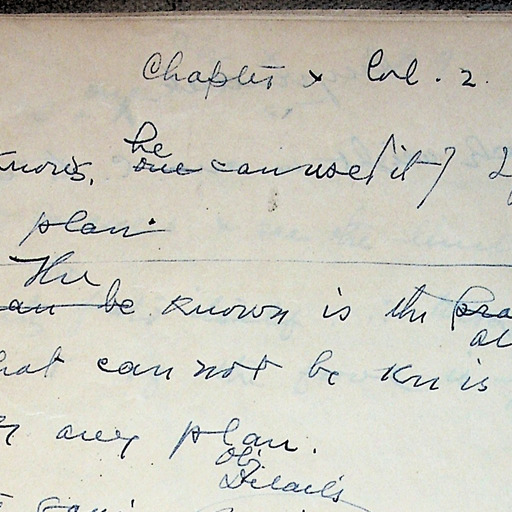 Chapter x Col. 2.
he
knows, one can use it
plan.
The
can be known is the
hat can not be kn is
any plan.
Details